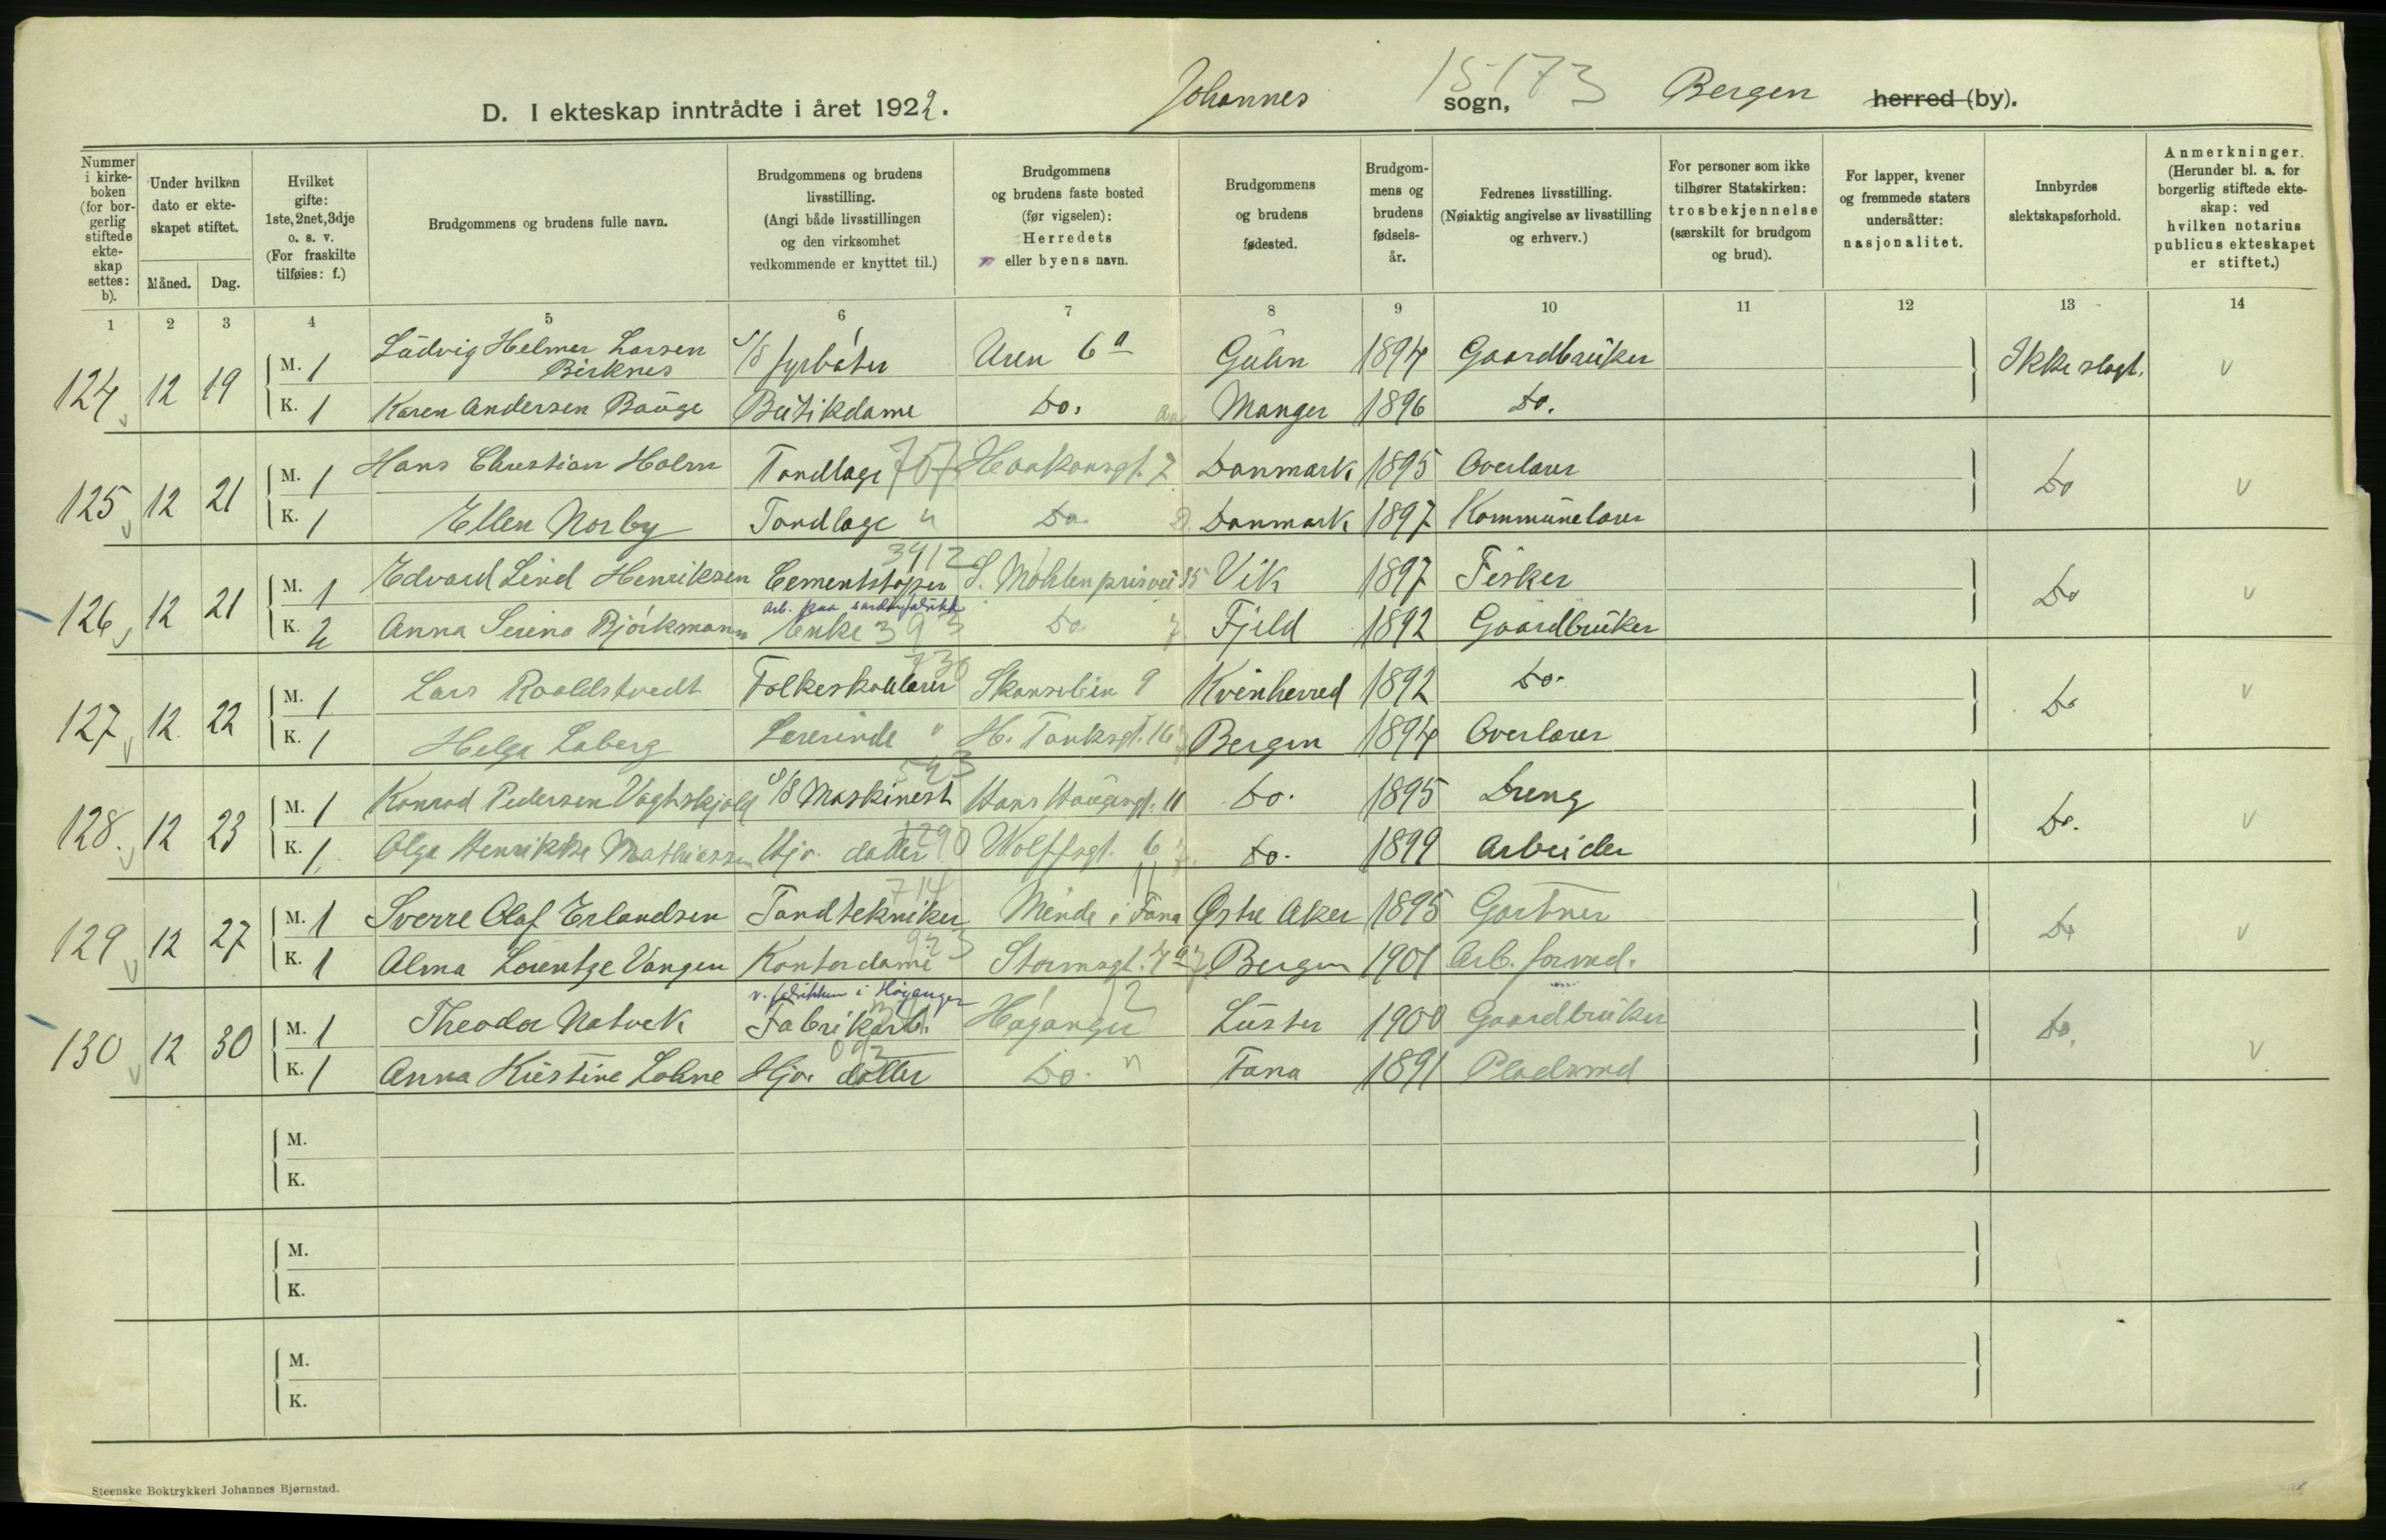 Johannes 15173 Bergen
D. I ekteskap inntrådte i året 1922. sogn, herred (by).
Nummer i kirkeboken (for borgerlig stiftede ekteskap settes: b).
Under hvilken dato er ekteskapet stiftet.
Måned. Dag.
Hvilket gifte: 1ste, 2net, 3dje o. s. v. (For fraskilte tilføies: f.)
Brudgommens og brudens fulle navn.
Brudgommens og brudens livsstilling. (Angi både livsstillingen og den virksomhet vedkommende er knyttet til.)
Brudgommens og brudens faste bosted (før vigselen): Herredets eller byens navn.
Brudgommens og brudens fødested.
Brudgommens og brudens fødselsår.
Fedrenes livsstilling. (Nøiaktig angivelse av livsstilling og erhverv.)
For personer som ikke tilhører Statskirken: trosbekjennelse (særskilt for brudgom og brud).
For lapper, kvener og fremmede staters undersåtter: nasjonalitet.
Innbyrdes slektskapsforhold.
Anmerkninger. (Herunder bl. a. for borgerlig stiftede ekteskap: ved hvilken notarius publicus ekteskapet er stiftet.)
1 2 3 4 5 6 7 8 9 10 11 12 13 14
124 12 19 M. 1 Ludvig Helmer Larsen Birknes S/S fyrbøter Uren 6a Gulen 1894 Gaardbruker Ikke slagt. v
K. 1 Karen Andersen Bauge Butikdame Do. Manger 1896 Do.
125 12 21 M. 1 Hans Christian Holm Tandlæge 707 Haakonsgt. 7 Danmark 1895 Overlærer Do v
K. 1 Ellen Norby Tandlæge " Do. D. Danmark 1897 Kommunelærer
3912
126 12 21 M. 1 Edvard Lind Henriksen Cementstøper S. Møhlenprisvei 35 Vik 1897 Fisker Do v
Arb. paa sardinfabrikk
K. 2 Anna Serina Bjørkmann Enke 393 Do 7 Fjeld 1892 Gaardbruker
730
127 12 22 M. 1 Lars Raaldstvedt Folkeskolelærer Skanselien 9 Kvinherred 1892 Do. Do v
K. 1 Helga Laberg Lærerinde " H. Tanksgt. 16 Bergen 1894 Overlærer
543
128. 12 23 M. 1 Konrad Pedersen Vaghskjold S/S Maskinist Hans Haugesgt. 11 Do. 1895 Dreng Do. v
K. 1 Olga Henrikke Mathiessen Hjv. datter 1290 Wolffsgt. 6 Do. 1899 Arbeider
714 11
129 12 27 M. 1 Sverre Olaf Erlandsen Tandtekniker Minde i Fana Østre Aker 1895 Gartner Do v
K. 1 Alma Lorentze Vangen Kontordame 923 Stormsgt. 7a Bergen 1901 Arb. formd.
v. fabrikken i Høyanger 12
130 12 30 M. 1 Theodor Natvik Fabrikarb. Høyanger Luster 1900 Gaardbruker Do. v
092
K. 1 Anna Kristine Lohne Hjv. datter Do. " Fana 1891 Pladsmd
M.
K.
M.
K.
M.
K.
Steenske Boktrykkeri Johannes Bjørnstad.